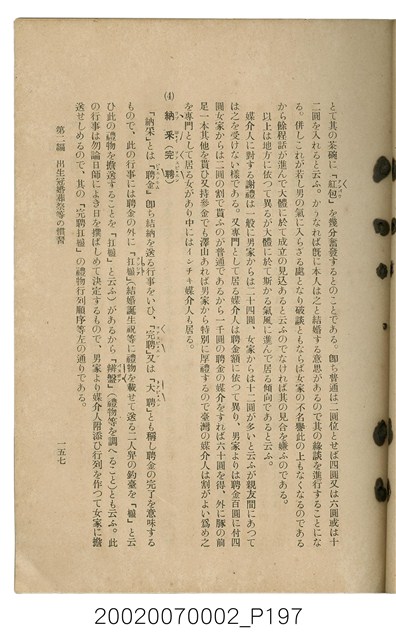 とて其の茶碗に「紅包」を幾分奮發するとのことである。卽ち普通は二圓位とせば四圓又は六圓或は十
二圓を入れると云ふ。かうなれば旣に本人は之と結婚する意思があるので其の緣談を進行することにな
る。併しこれが若し男の氣に入らざる處となり破談ともならば女家の不名譽此の上もなくなるのである
から餘程話が進んで大體に於て成立の見込あると云ふのでなければ其の見合を嫌ふのである。
以上は地方に依つて異るが大體に於て斯かる氣風に進んで居る傾向であると云ふ。
媒介人に對する謝禮は一般に男家からは二十四圓、女家からは十二圓が多いと云ふが親友間にあつて
は之を受けない樣である。又專門として居る媒介人は聘金額に依つて異り、男家よりは聘金百圓に付四
圓女家からは二圓の割で貰ふのが普通であるから一千圓の聘金の媒介をすれば六十圓を得、外に豚の前
足一本其他を貰ひ又持參金でも澤山あれば男家から特別に厚禮するので臺灣の媒介人は割がよい爲め之
を專門として居る女があり中にはインチキ媒介人も居る。
(4) 納采(完聘)
「納采」とは「聘金」卽ち結納を送る行事をいひ、「完聘」又は「大聘」とも稱し聘金の完了を意味する
もので、此の行事には聘金の外に「扛楹」(結婚誕生祝等に禮物を載せて送る二人舁の釣臺を「楹」と云
ひ此の禮物を撥送することを「扛楹」と云ふ)があるから「辦盤」(禮物等を調へること)とも云ふ。此
の行事は勿論日師によき日を擇ばしめて決定するもので、男家より媒介人附添ひ行列を作つて女家に撥
送せしめるので、其の「完聘扛楹」の禮物行列順序等左の通りである。
第二編 出生冠婚葬祭等の慣習
一五七
20020070002_P197